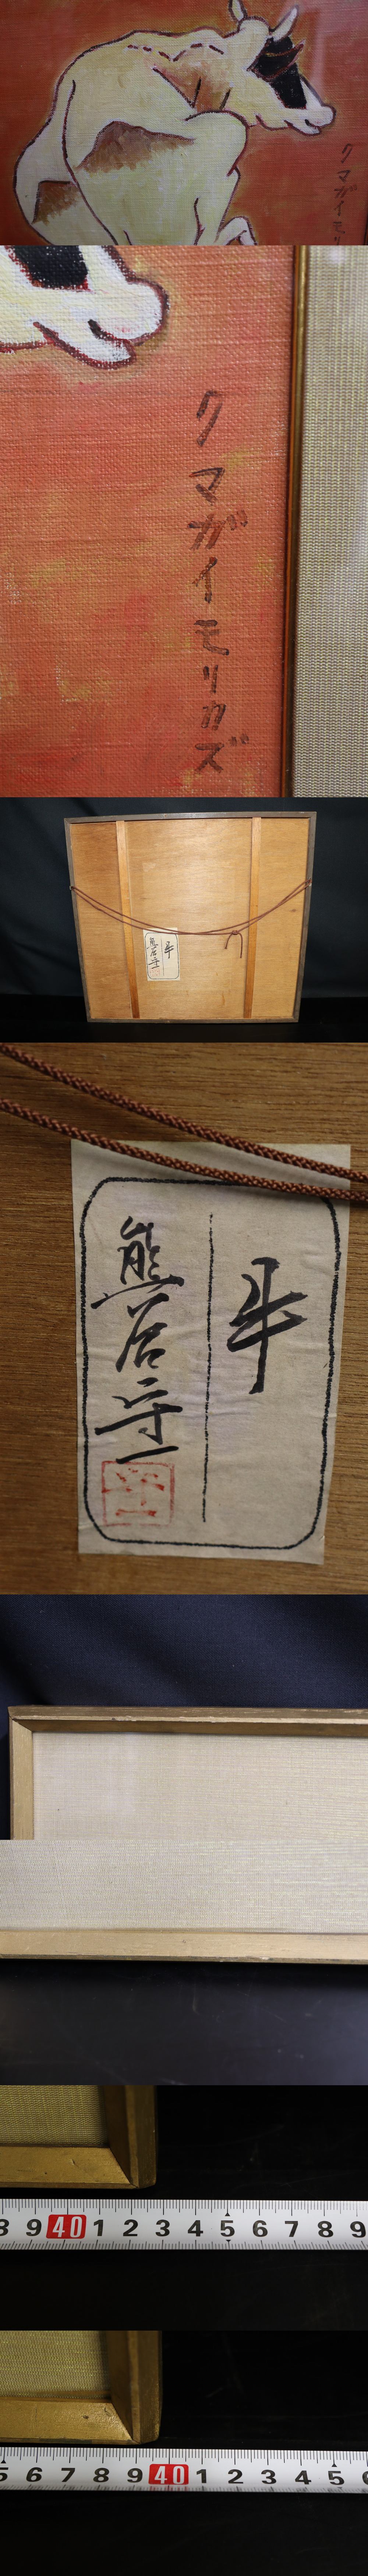 クマガイモリ
クマガイモリカズ
牛
熊谷守一
牛
熊谷守一
8 9 40 1 2 3 4 5 6 7 8 9
5 6 7 8 9 40 1 2 3 4 5